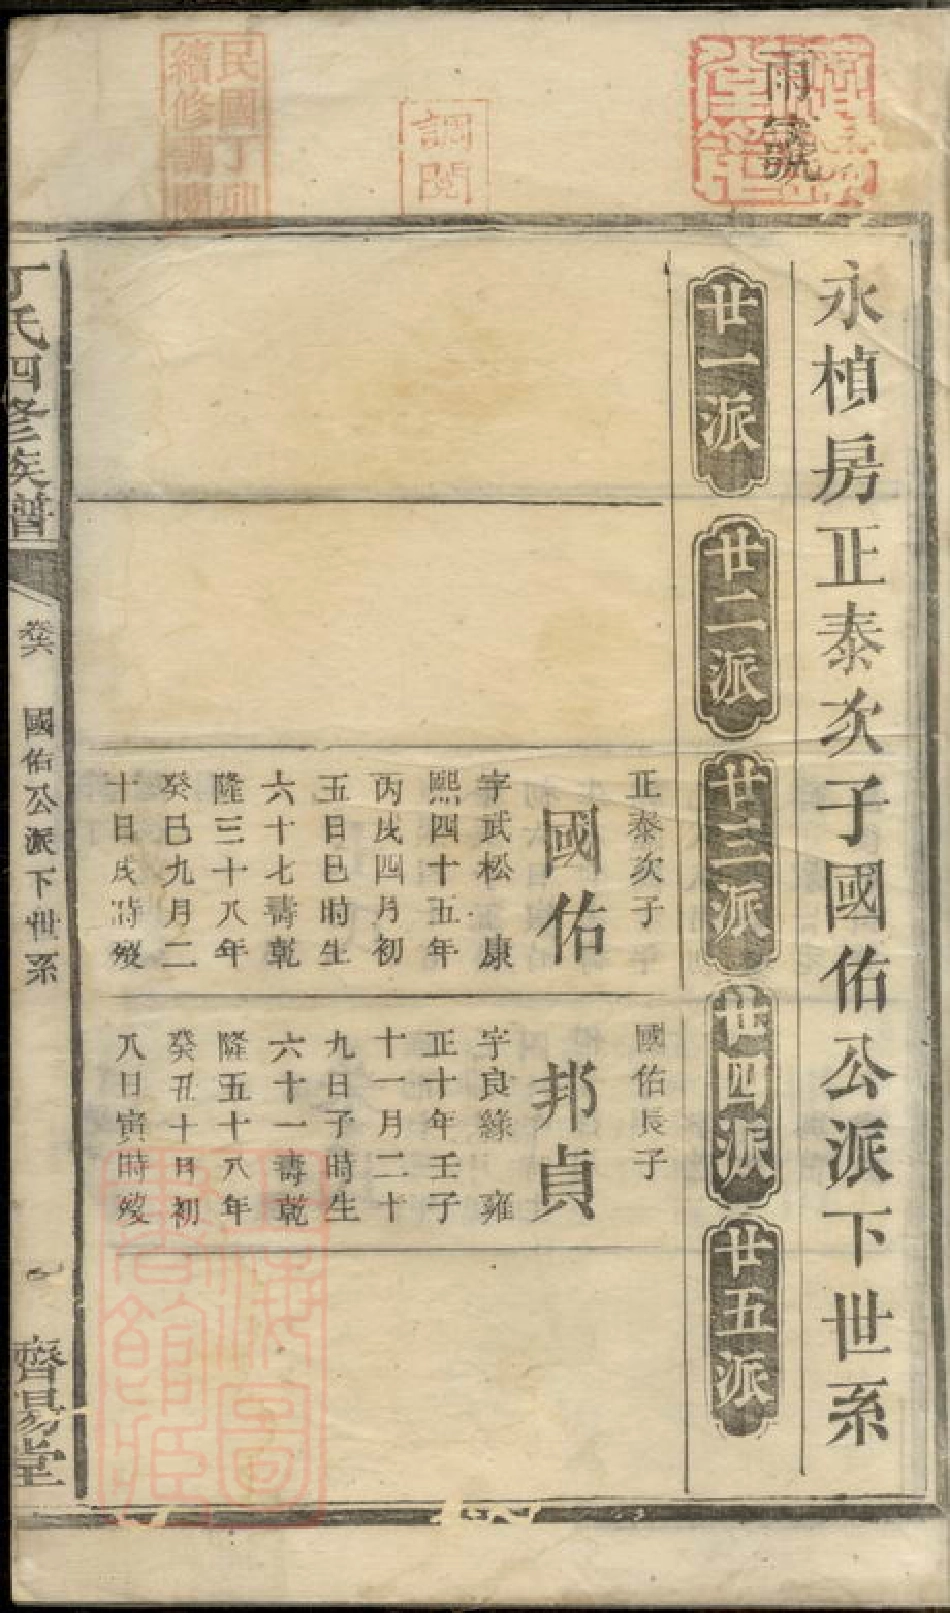 雨號
調閱
民國丁卯
續修調閱
永楨房正泰次子國佑公派下世系
廿一派
廿二派
廿三派
廿四派
廿五派
正泰次子
國佑
字武松 康
熙四十五年
丙戌四月初
五日巳時生
六十七壽乾
隆三十八年
癸巳九月二
十日戌時歿
國佑長子
邦貞
字良緣 雍
正十年壬子
十一月二十
九日子時生
六十一壽乾
隆五十八年
癸丑十月初
八日寅時歿
上海圖
書館藏
丁氏四修族譜
卷六 國佑公派下世系
一
濟陽堂